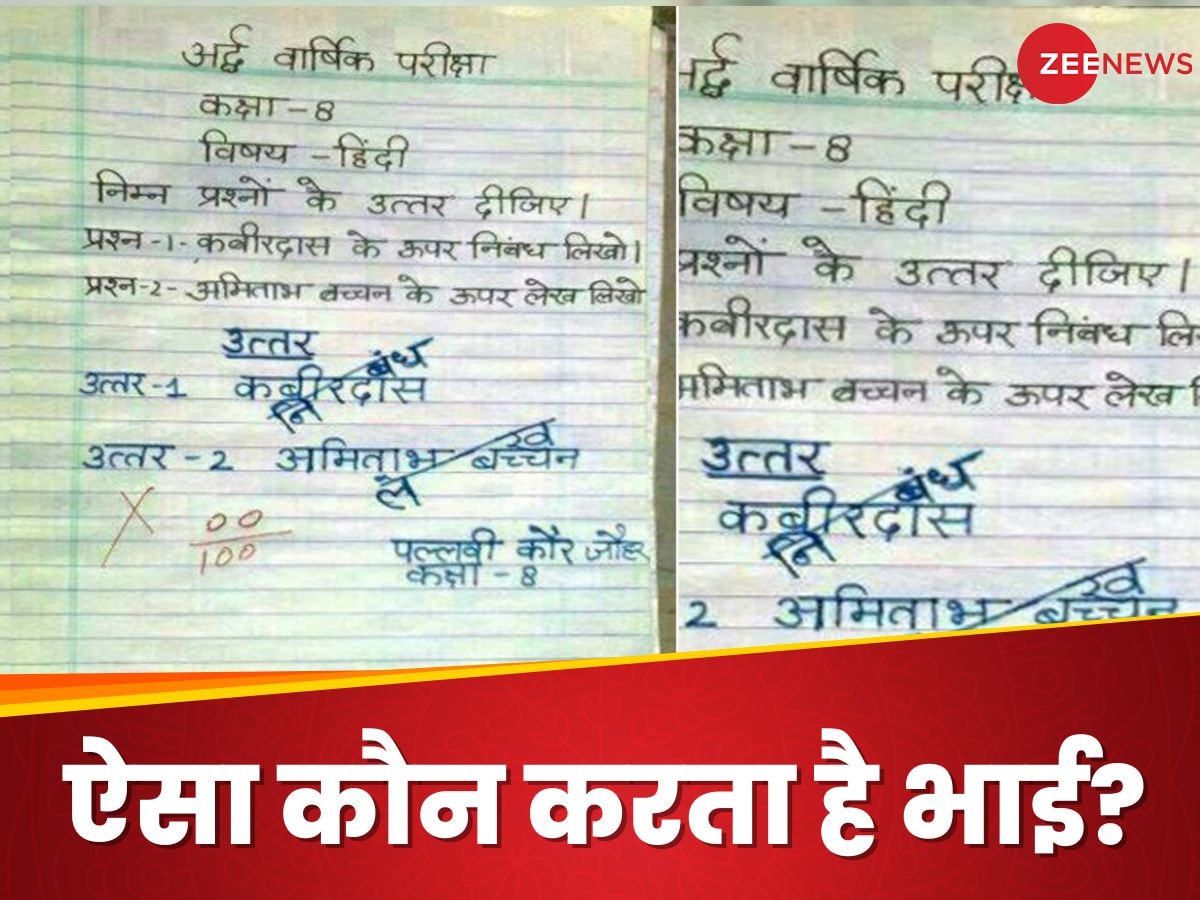 अर्द्ध वार्षिक परीक्षा
कक्षा - 8
विषय - हिंदी
निम्न प्रश्नों के उत्तर दीजिए।
प्रश्न -1- कबीरदास के ऊपर निबंध लिखो।
प्रश्न -2- अमिताभ बच्चन के ऊपर लेख लिखो
उत्तर
बंध
उत्तर -1 कबीरदास
नि
ख
उत्तर - 2 अमिताभ बच्चन
ले
00
100
पल्लवी कौर जौहर
कक्षा - 8
ZEENEWS
र्द्ध वार्षिक परीक्ष
कक्षा - 8
विषय - हिंदी
प्रश्नों के उत्तर दीजिए।
कबीरदास के ऊपर निबंध लि
अमिताभ बच्चन के ऊपर लेख
उत्तर
बंध
कबीरदास
नि
ख
2 अमिताभ बच्चन
ऐसा कौन करता है भाई?